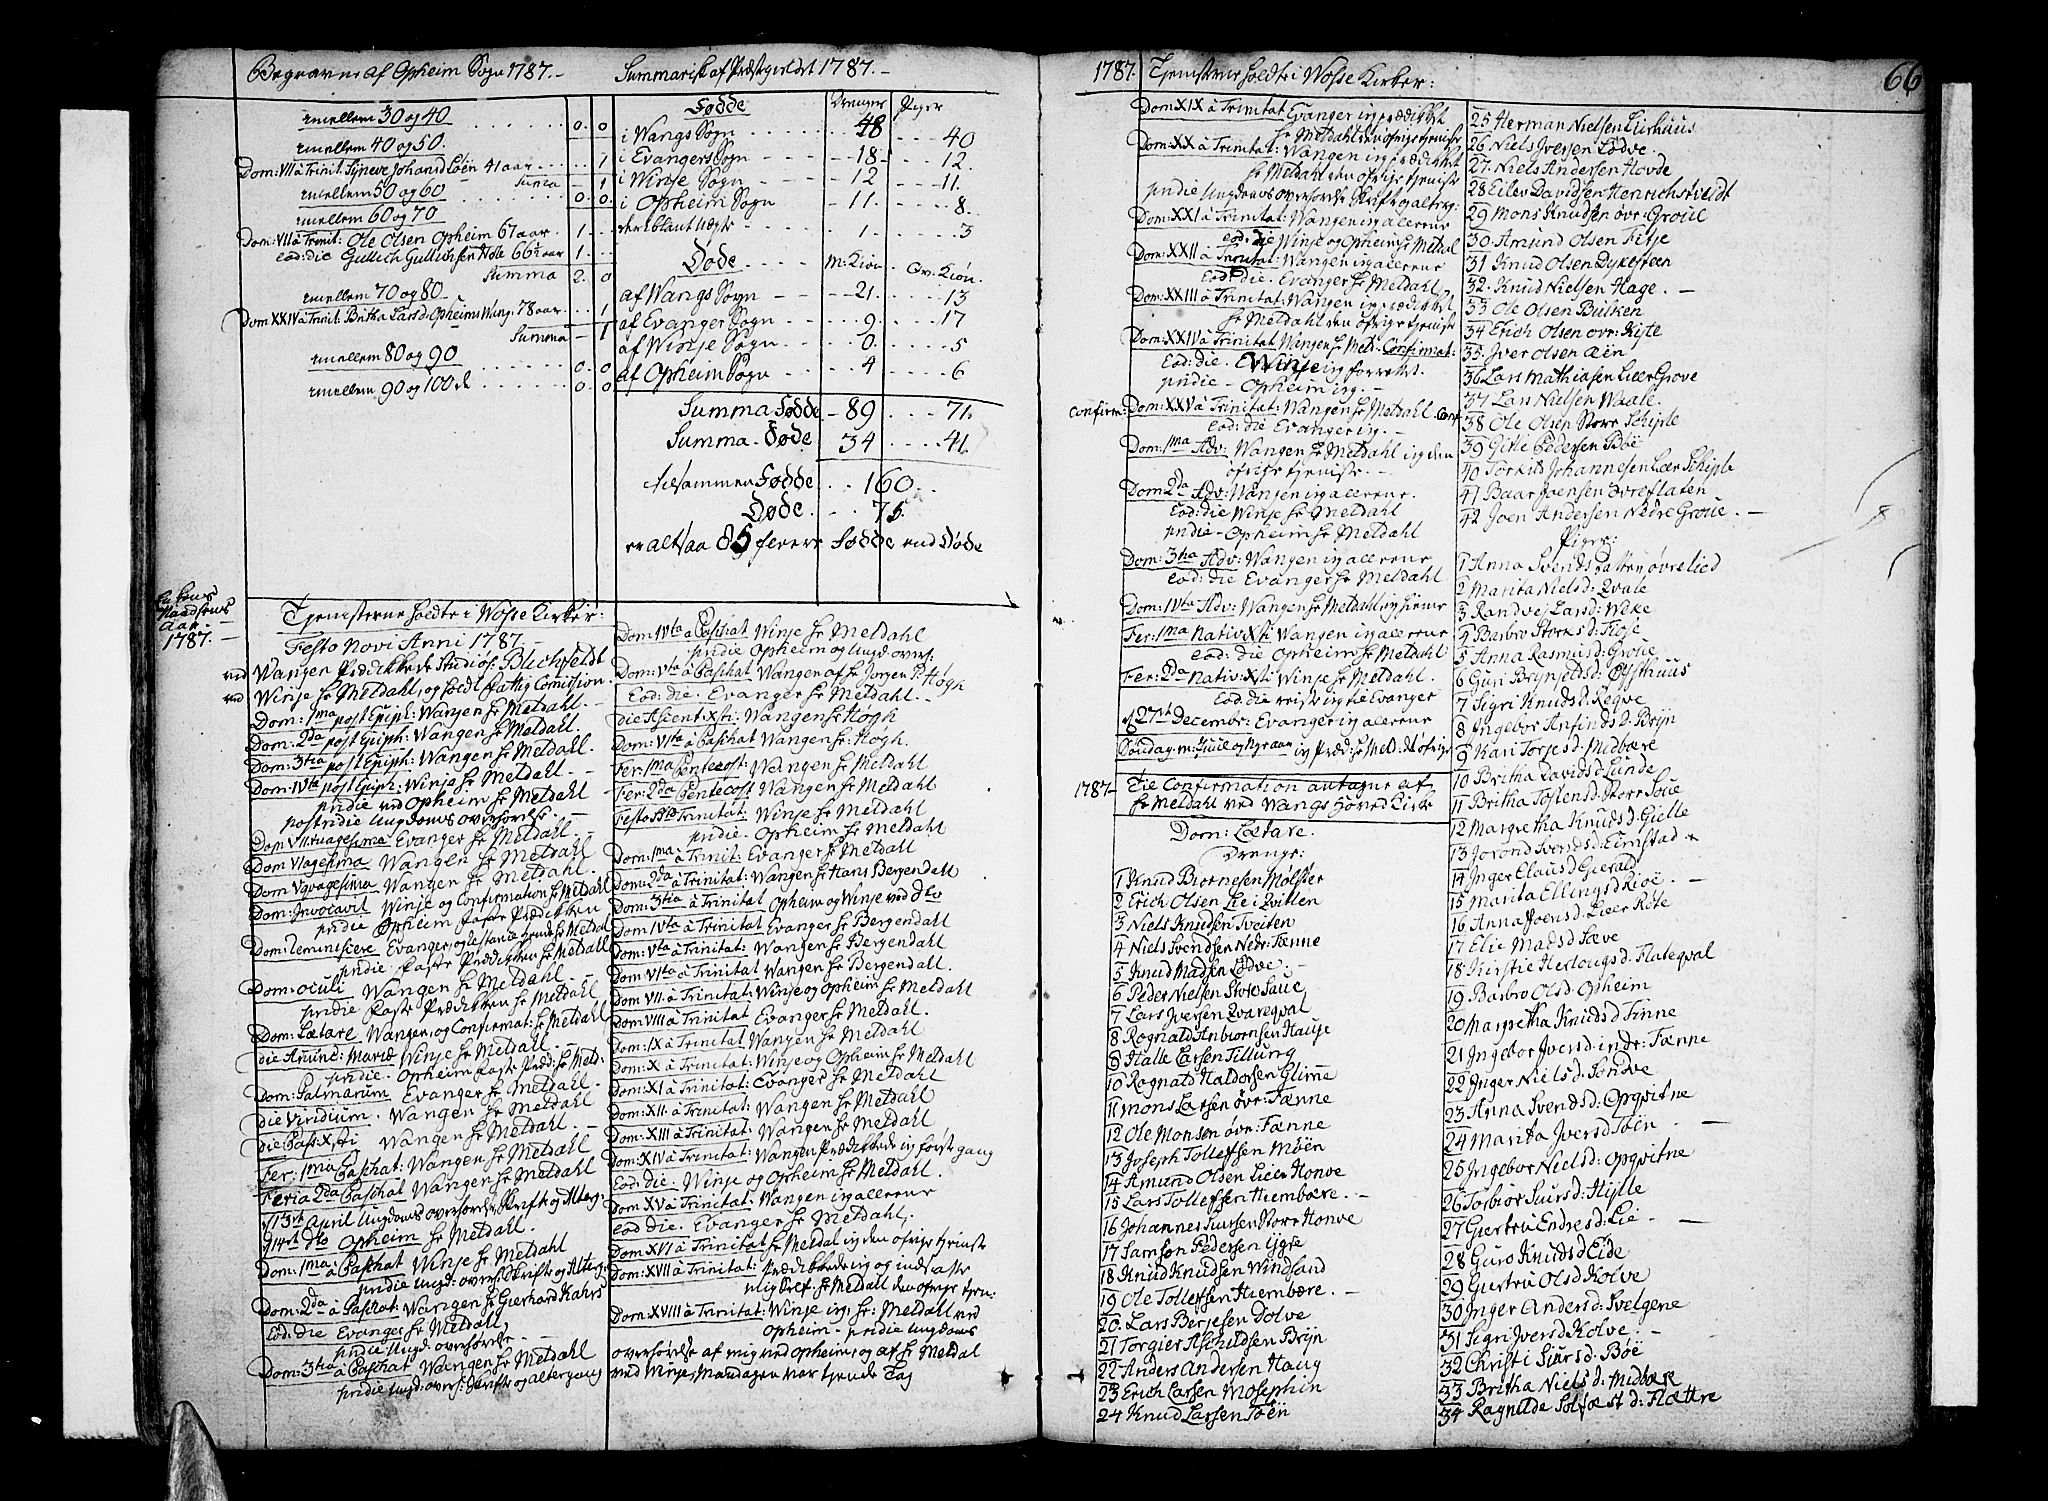 Begravne af Opheim Sogn 1787.
imellem 30 og 40 . . . 0. 0
imellem 40 og 50.
Dom: VII à Trinit: Synneve Johansd Löen 41 aar . . . 1
Suma - 1
imellem 50 og 60 . . . 0. 0
imellem 60 og 70
Dom: VII à Trinit: Ole Olsen Opheim 67 aar. 1
eod: die Gullich Gullichsen 66½ aar 1
Summa 2. 0
imellem 70 og 80
Dom XXIV à Trinit. Britha Larsd: Opheim 78 aar . . . 1
Summa - 1
imellem 80 og 90 . . . 0. 0
imellem 90 og 100 . . . 0. 0
Summarisk af Præstegieldet 1787.
Födde Drenger Piger
i Wangs Sogn 48 40
i Evangers Sogn 18 12.
i Winje Sogn 12 11.
i Opheim Sogn 11. 8.
deriblant Uægte 1. 3
Döde M: Kiön Qv: Kiön.
af Wangs Sogn 21. 13
af Evanger Sogn 9. 17
af Winje Sogn 0. 5
af Opheim Sogn 4 6
Summa Födde - 89 71.
Summa Döde 34 41.
tilsammen Födde 160.
Döde. 75.
er altsaa 85 fleere Födde end Döde
Aar
1787.
Tjenisterne holdte i Wosse Kirker:
Festo Novi Anni 1787.
ved Wangen Prædikkede Studios: Blichfeldt
ved Winje hr Meldahl, og holdt Fattig Comission.
Dom: 1ma post Epiph: Wangen hr Meldahl.
Dom: 2da post Epiph: Wangen hr Meldahl
Dom: 3tia post Epiph: Wangen hr Meldahl.
Dom: IVta post Epiph: Winje hr Meldahl.
pridie ved Opheim hr Meldahl
postridie Ungdoms overhörelse.
Dom VIItuagesima Evanger hr Meldahl.
Dom VIagesima Wangen hr Meldahl
Dom Vqvagesima Wangen hr Meldahl.
Dom: Invocavit Winje og Confirmation hr Meldahl
pridie Opheim Faste Prædikken
Dom: Reminiscere Evanger, hr Meldal
pridie Faste Prædikken hr Meldahl
Dom: Oculi Wangen hr Meldahl.
pridie Faste Prædikken hr Meldahl
Dom: Lætare Wangen, og Confirmat: hr Meldahl
die Anunc: Mariæ Winje hr Meldahl.
pridie. Opheim Faste Præd: hr Meld:
Dom: Palmarum Evanger hr Meldahl.
die Viridium. Wangen hr Meldahl
die Pass: Xsti Wangen hr Meldahl.
Fer: 1ma Paschat: Wangen hr Meldahl
Feria 2da Paschat Wangen hr Meldahl
d 13de April Ungdoms overhörelse Skrifte og Alterg:
d 14de dto Opheim hr Meldahl.
Dom: 1ma à Paschat Winje hr Meldahl
pridie Ungd: overh: Skrifte og Alterg:
Dom: 2da à Paschat: Wangen hr Gierhard Kahrs
Eod: die Evanger hr Meldahl
pridie Ungd: overhörelse
Dom: 3tia à Paschat Wangen hr Meldahl
pridie Ungd: overh: Skrifte og altergang
Dom: IVta à Paschat Winje hr Meldahl
pridie Opheim og Ungd overh:
Dom: Vta à Paschat Wangen af hr Jörgen P. Högh
Eod: die: Evanger hr Meldahl.
die Ascent: Xsti: Wangen hr Högh
Dom: VIta à Paschat Wangen hr: Högh.
Fer: 1ma Pentecost: Wangen hr Meldahl
Fer: 2da Pentecost Wangen hr Meldahl
Festo Trinitat: Winje hr Meldahl
pridie. Opheim hr Meldahl
Dom: 1ma à Trinit: Evanger hr Meldahl
Dom: 2da à Trinitat: Wangen hr Hans Bergendahl
Dom: 3tia à Trinitat Opheim og Winje ved Dto
Dom IVta à Trinitat Evanger hr Bergendahl
Dom: Vta à Trinitat: Wangen hr Bergendahl
Dom: VIta à Trinitat Wangen hr Bergendall.
Dom VII à Trinitat: Winje og Opheim hr Meldahl
Dom VIII à Trinitat Evanger hr Meldahl.
Dom: IX à Trinitat Wangen hr Meldahl
Dom: X à Trinitat: Winje og Opheim hr Meldahl
Dom: XI à Trinitat: Evanger hr Meldahl
Dom: XII à Trinitat: Wangen hr Meldahl
Dom: XIII à Trinitat: Wangen hr Meldahl
Dom: XIV à Trinitat: Wangen Prædikkede ieg först gang
Eod: die: Winje og Opheim hr Meldahl.
Dom: XV à Trinitat: Wangen ieg allerene
Eod die. Evanger hr Meldahl,
Dom: XVI à Trinitat hr Meldal ieg den öfrige tjeniste
Dom: XVII à Trinitat: Prædikkede ieg og indsatte
mig Selv hr Meldall den öfrige tjen:
Dom: XVIII à Trinitat: Winje ieg; hr: Meldall ved
Opheim - pridie Ungdoms
overhörelse af mig ved Opheim, og af hr Meldal
ved Winje, Mandagen var tjenede Dag
1787. Tjenisterne holdte i Wosse Kirker: 66
Dom XIX à Trinitat Evanger ieg prædikket
hr Meldahl den öfrige tjeniste
Dom: XX à Trinitat: Wangen ieg prædikket
hr Meldahl den öfrige tjeniste
pridie Ungdoms overhörelse Skrifte og alterg:
Dom: XXI à Trinitat: Wangen ieg allerene
eod: die Winje og Opheim hr Meldal
Dom: XXII à Trinitat: Wangen ieg allerene
Eod: die. Evanger hr Meldahl.
Dom: XXIII à Trinitat: Wangen ieg prædikket
hr Meldahl den öfrige tjeniste
Dom: XXIV à Trinitat Wangen hr Meld. Confirmat:
Eod: die. Winje ieg forrettet.
pridie - Opheim ieg.
Confirm: Dom: XXV à Trinitat: Wangen hr Meldahl. Conf
Eod: die Evanger ieg.
Dom: 1ma Adv: Wangen hr Meldahl ieg den
öfrige tjeniste.
Dom 2da Adv: Wangen ieg allerene.
Eod: die Winje hr Meldahl
pridie - Opheim hr Meldahl
Dom: 3tia Adv: Wangen ieg allerene
eod: die Evanger hr Meldahl
Dom: IVta Adv: Wangen hr Meldahl ieg hieme
Fer: 1ma Nativ: Xsti Wangen ieg allerene
eod: die Opheim hr Meldahl
Fer: 2da Nativ: Xsti Winje hr Meldahl.
Eod: die reiste ieg til Evanger
d 27de Decembr: Evanger ieg allerene
Söndag m: Juul og Nyaar ieg Præd: hr Meld: det öfrige
1787. Til Confirmation antagne af
hr Meldahl ved Wangs Hoved Kirke
Dom: Lætare.
Drenge:
1 Knud Biörnesen Mölster
2 Erich Olsen Lie i Qvitlen
3 Niels Knudsen Tveiten
4 Niels Svendsen Nedr: Fænne
5 Knud Madsen Lödve
6 Peder Nielsen Store Saue
7 Lars Iversen Qvareqval
8 Rognald Anbiörnsen Hauje
9 Halle Larsen Tillung
10 Rognald Haldorsen Glimme
11 Mons Larsen övr: Fænne
12 Ole Monsen övr: Fænne
13 Joseph Tollefsen Möen
14 Amund Olsen Lien Honve
15 Lars Tollefsen Hiembære.
16 Johannes Siursen Store Honve
17 Samson Pedersen Ygre
18 Knud Knudsen Windsand
19 Ole Tollefsen Hiembære.
20. Lars Berjesen Dolve
21 Torgier Aschildsen Bryn
22 Anders Andersen Haug
23 Erich Larsen Mosephin
24 Knud Larsen Töen
25 Herman Nielsen Lirhuus
26 Niels Iversen Lödve.
27. Niels Andersen Hovde
28 Eilev Davidsen Henrichstveidt
29 Mons Knudsen övr: Groue
30. Amund Olsen Fitje
31 Knud Olsen Dykesteen
32. Knud Nielsen Hage.
33 Ole Olsen Bulken
34 Erich Olsen övr: Kyte
35. Iver Olsen Æen
36 Lars Mathiasen Lier Grove
37 Lars Nielsen Waale.
38 Ole Olsen Store Schiple
39 Gitle Pedersen Böe
40 Torkild Johannesen Lær Schiple
41 Baar Joensen Övreflaten
42 Joen Andersen Nedre Groue.
Piger:
1 Anna Svendsdatter övre Lied
2 Marita Nielsd: Qvale
3 Randvej Larsd: Weke
4 Barbro Storksd: Flöje
5 Anna Rasmusd: Groue
6 Guri Brynjelsd: Opsthuus
7 Sigri Knudsd: Reqve
8 Ingebor Anfinds d: Bryn
9 Kari Torjesd: Midbære
10 Britha Davidsd: Lunde
11 Britha Tostensd: Store Saue
12 Margretha Knudsd: Gielle
13 Jorond Iversd: Eimstad
14 Inger Clausd Gierald
15 Marita Ellingsd Rioe.
16 Anna Joensd: Lieer Röte
17 Elie Madsd: Sæve
18 Kirstie Herlougsd: Flateqval
19 Barbro Olsd: Opheim
20 Margretha Knudsd Finne
21 Ingebor Iversd: Nedr: Fænne
22 Inger Nielsd: Söndve
23. Anna Svendsd: Opqvitne
24 Marita Iversd Töen.
25 Ingebor Nielsd: Opqvitne
26 Torbiör Siursd: Hylle
27 Giertru Endresd: Lie
28 Guro Knudsd Eide
29 Giertru Olsd Kolve
30 Inger Andersd: Svelgene
31 Sigri Iversd Kolve.
32 Christi Siursd: Böe
33 Britha Niels d: Midbære
34 Ragnilde Solfæst d: Flættre